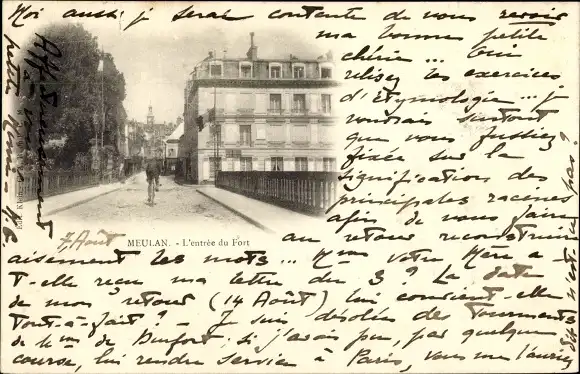 Moi aussi je serai contente de vous revoir
ma bonne petite
chérie... Oui
relisez les exercices
d'Etymologie... je
voudrais surtout
que vous fussiez
fixée sur la
signification des
principales racines
afin de vous faire
au retour reconstruire
7 Août
MEULAN. - L'entrée du Fort
aisément les mots... Mme votre Mère a-
t-elle reçu ma lettre du 3? La date
de mon retour (14 Août) lui convient-elle
tout-à-fait? - Je suis désolée des tourments
de Mme de Durfort; si j'avais pu, par quelque
course, lui rendre service à Paris, vous me l'auriez
dit n'est-ce pas?
Affectueusement à vous
petite Amie -